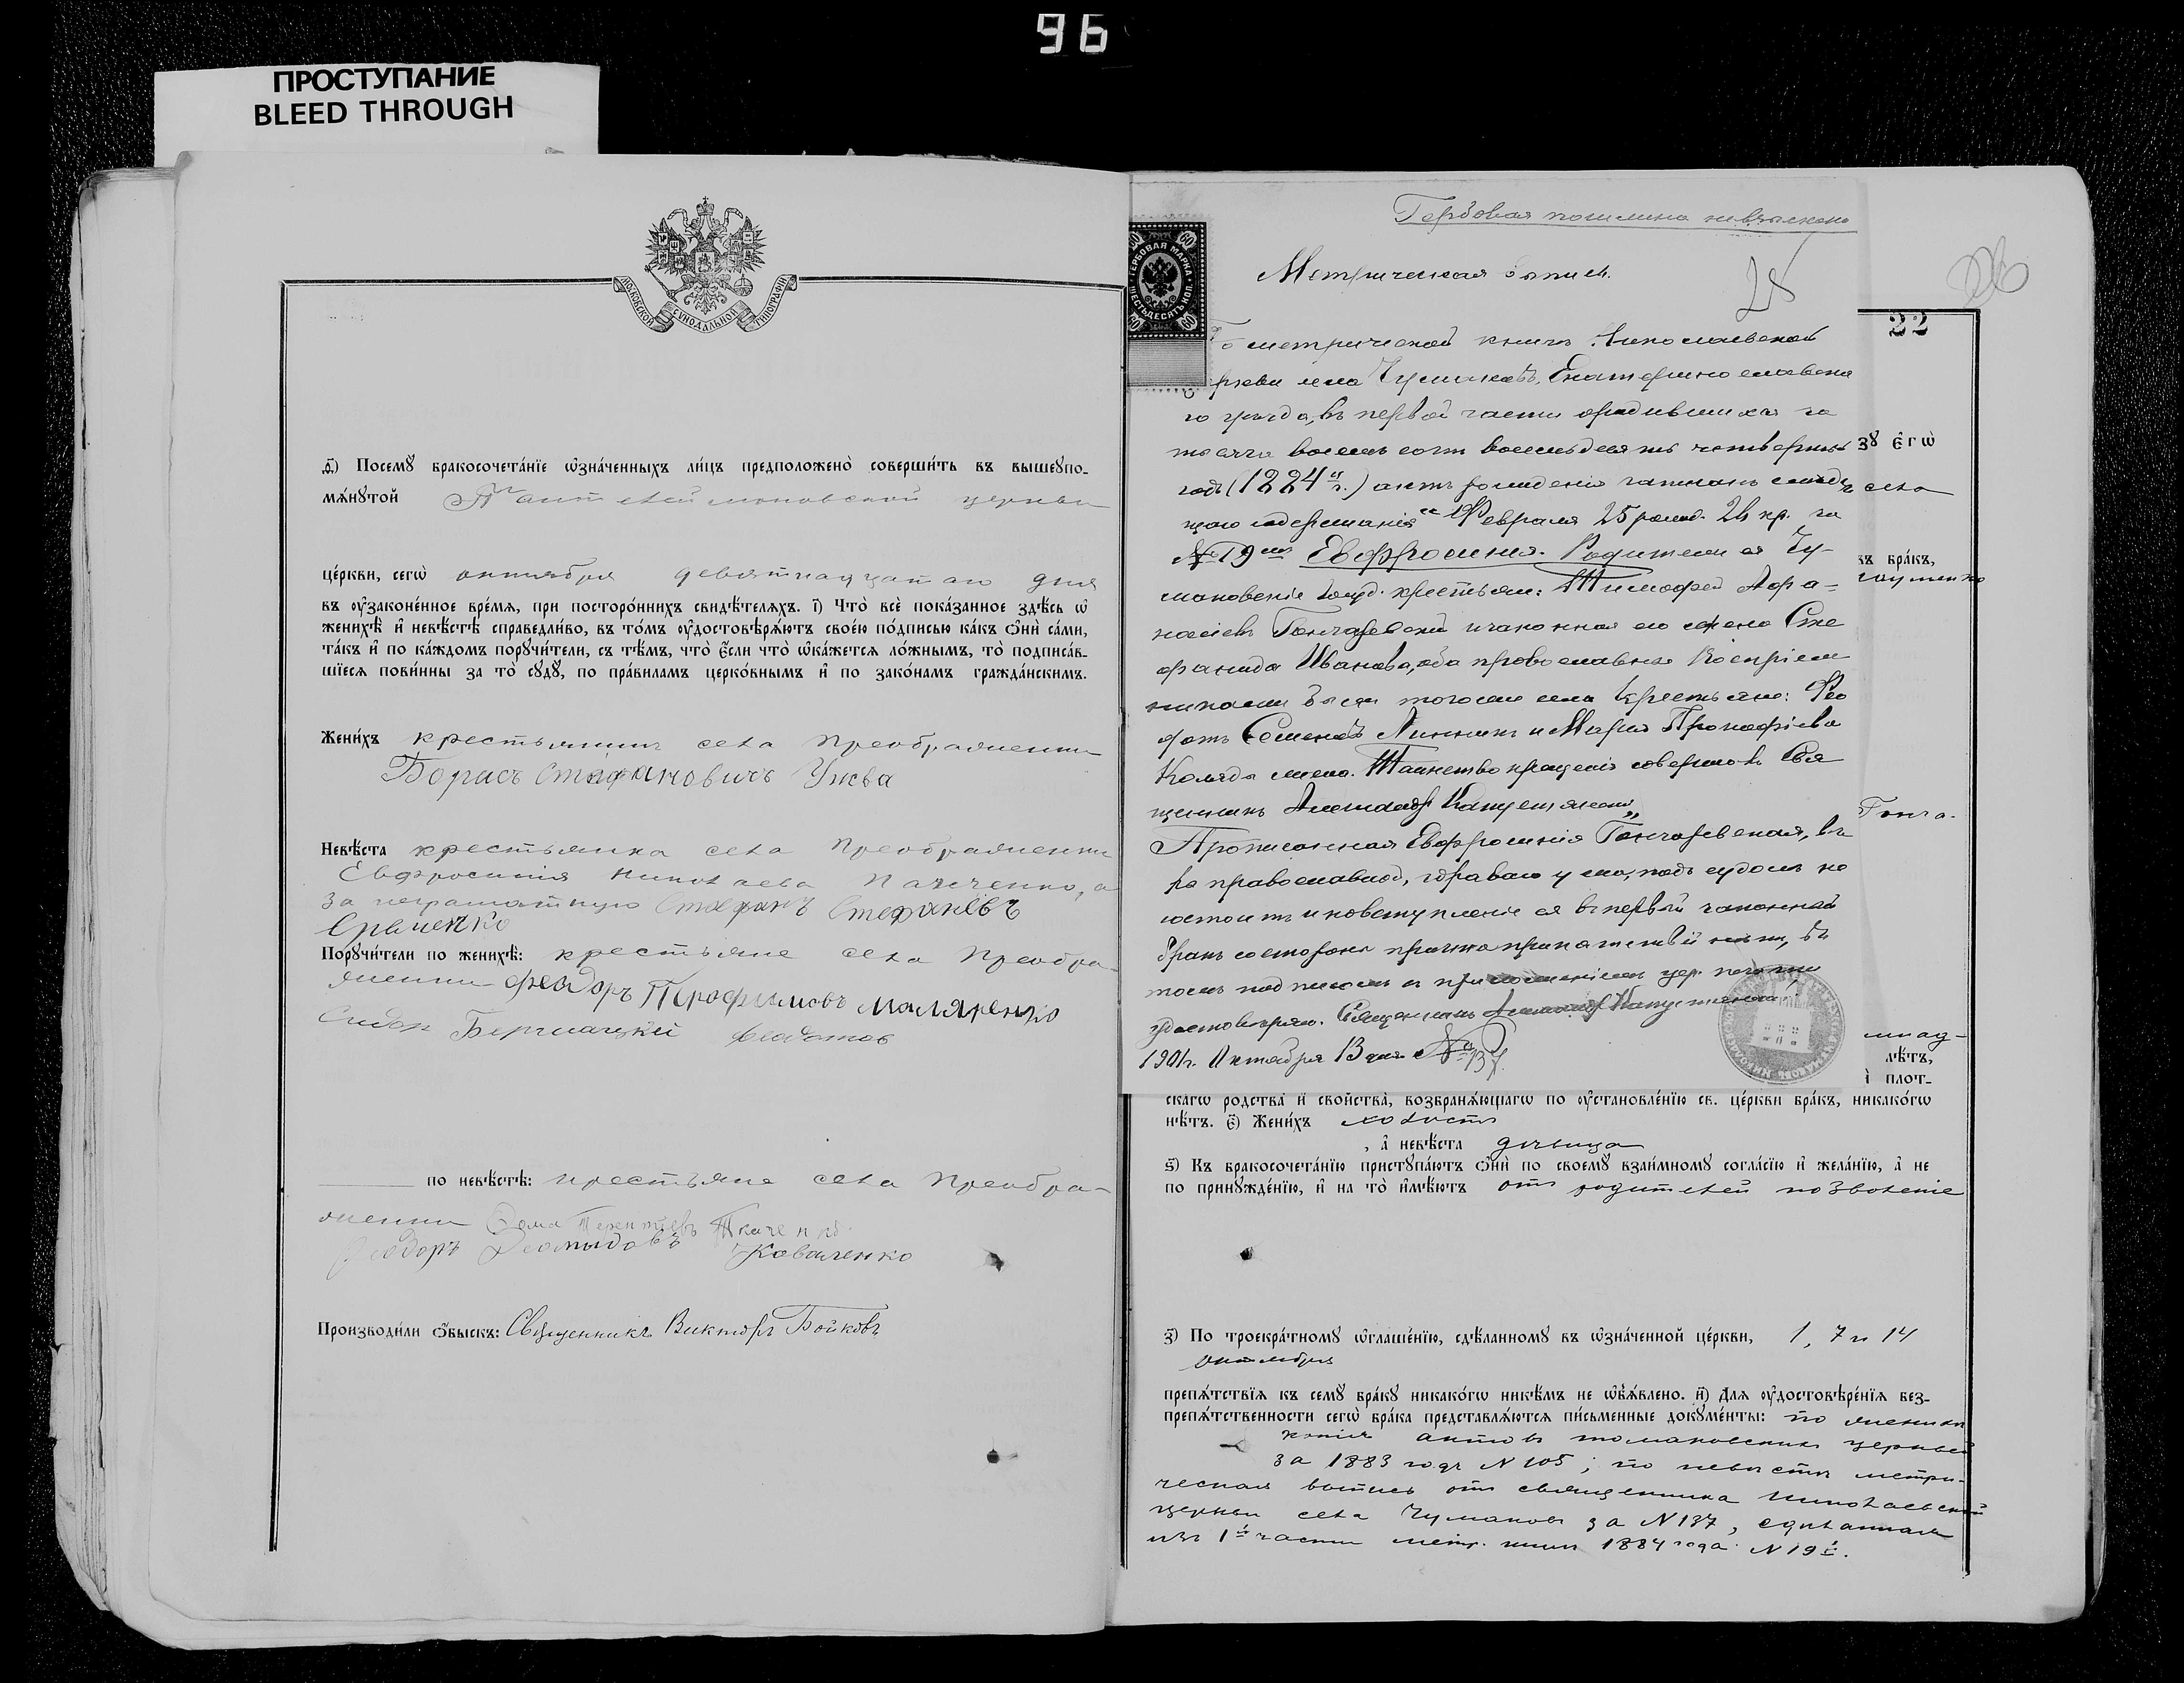 96
ПРОСТУПАНИЕ
BLEED THROUGH
МОСКОВСКОЙ СѴНОДАЛЬНОЙ ТИПОГРАФІИ
Посему бракосочетаніе ѡзначенныхъ лицъ предположено совершить въ вышеупо-
мянутой Пантелеимоновской церкви
церкви, сегѡ октября девятнадцатаго дня
въ узаконенное время, при постороннихъ свидѣтеляхъ. і) Что все показанное здѣсь ѡ
женихѣ и невѣстѣ справедливо, въ томъ удостовѣряютъ своею подписью какъ ѡни сами,
такъ и по каждомъ поручители, съ тѣмъ, что если что ѡкажется ложнымъ, то подписав-
шіеся повинны за то суду, по правиламъ церковнымъ и по законамъ гражданскимъ.
Женихъ крестьянинъ села Преображенки
Борисъ Стефановичъ
Невѣста крестьянка села Преображенки
Евфросинія
за неграмотную Стефанъ Стефанѣвъ
Поручители по женихѣ: крестьяне села Преобра-
женки Феодоръ Трофимовъ Маляренко
по невѣстѣ: крестьяне села Преобра-
женки Терентьевъ Ткаченко
Феодоръ Коваленко
Производили ѡбыскъ: Священникъ Викторъ Бойковъ
Гербовая пошлина
ГЕРБОВАЯ МАРКА
ШЕСТЬДЕСЯТЪ КОП.
60 60 60 60
Метрическая выпись.
28
метрической книгѣ Николаевской
села Чумаковъ, Екатеринославска
го уѣзда, въ первой части о родившихся за
тысяча восемь сотъ восемьдесятъ четвертый
годъ (1884 г.) актъ рожденія записанъ слѣду
ющаго содержанія „Февраля 25 рожд. 26 кр. за
№ 19 Евфросинія. Родители ея Чу-
маковскіе крестьяне: Тимофей Афа-
насіевъ Гончаревскій и законная его жена Сте
фанида Иванова, оба православные. Воспріем
никами были того же села крестьяне: Фео
дотъ Семеновъ и Марія Прокофіева
Таинство крещенія совершалъ Свя
щенникъ Александръ Капустянскій“
Прописанная Евфросинія Гончаревская, вѣ
ры православной, здраваго ума, подъ судомъ не
состоитъ и ко вступленію ея въ первый законный
бракъ со стороны причта препятствій нѣтъ, въ
томъ подписомъ и приложеніемъ цер. печати
удостовѣряю. Священникъ Александръ Капустянскій
1901 г. Октября 13 дня № 137.
22
зу егѡ
села
къ бракъ,
Гонча-
лѣтъ,
и плот-
скагѡ родства и свойства, возбраняющагѡ по установленію св. церкви бракъ, никакогѡ
нѣтъ. є) Женихъ холостъ
, а невѣста дѣвица
ѕ) Къ бракосочетанію приступаютъ ѡни по своему взаимному согласію и желанію, а не
по принужденію, и на то имѣютъ отъ родителей позволеніе
з) По троекратному ѡглашенію, сдѣланному въ ѡзначенной церкви, 1, 7 и 14
октября
препятствія къ сему браку никакогѡ никѣмъ не ѡбъявлено. и) Для удостовѣренія без-
препятственности сегѡ брака представляются письменные документы: по женихѣ
копія актовъ церкви
за 1883 годъ № 105; по невѣстѣ метри-
ческая выпись отъ священника Николаевской
церкви села Чумаковъ за № 137, сдѣланная
изъ 1й части метр. книги 1884 года № 19й.